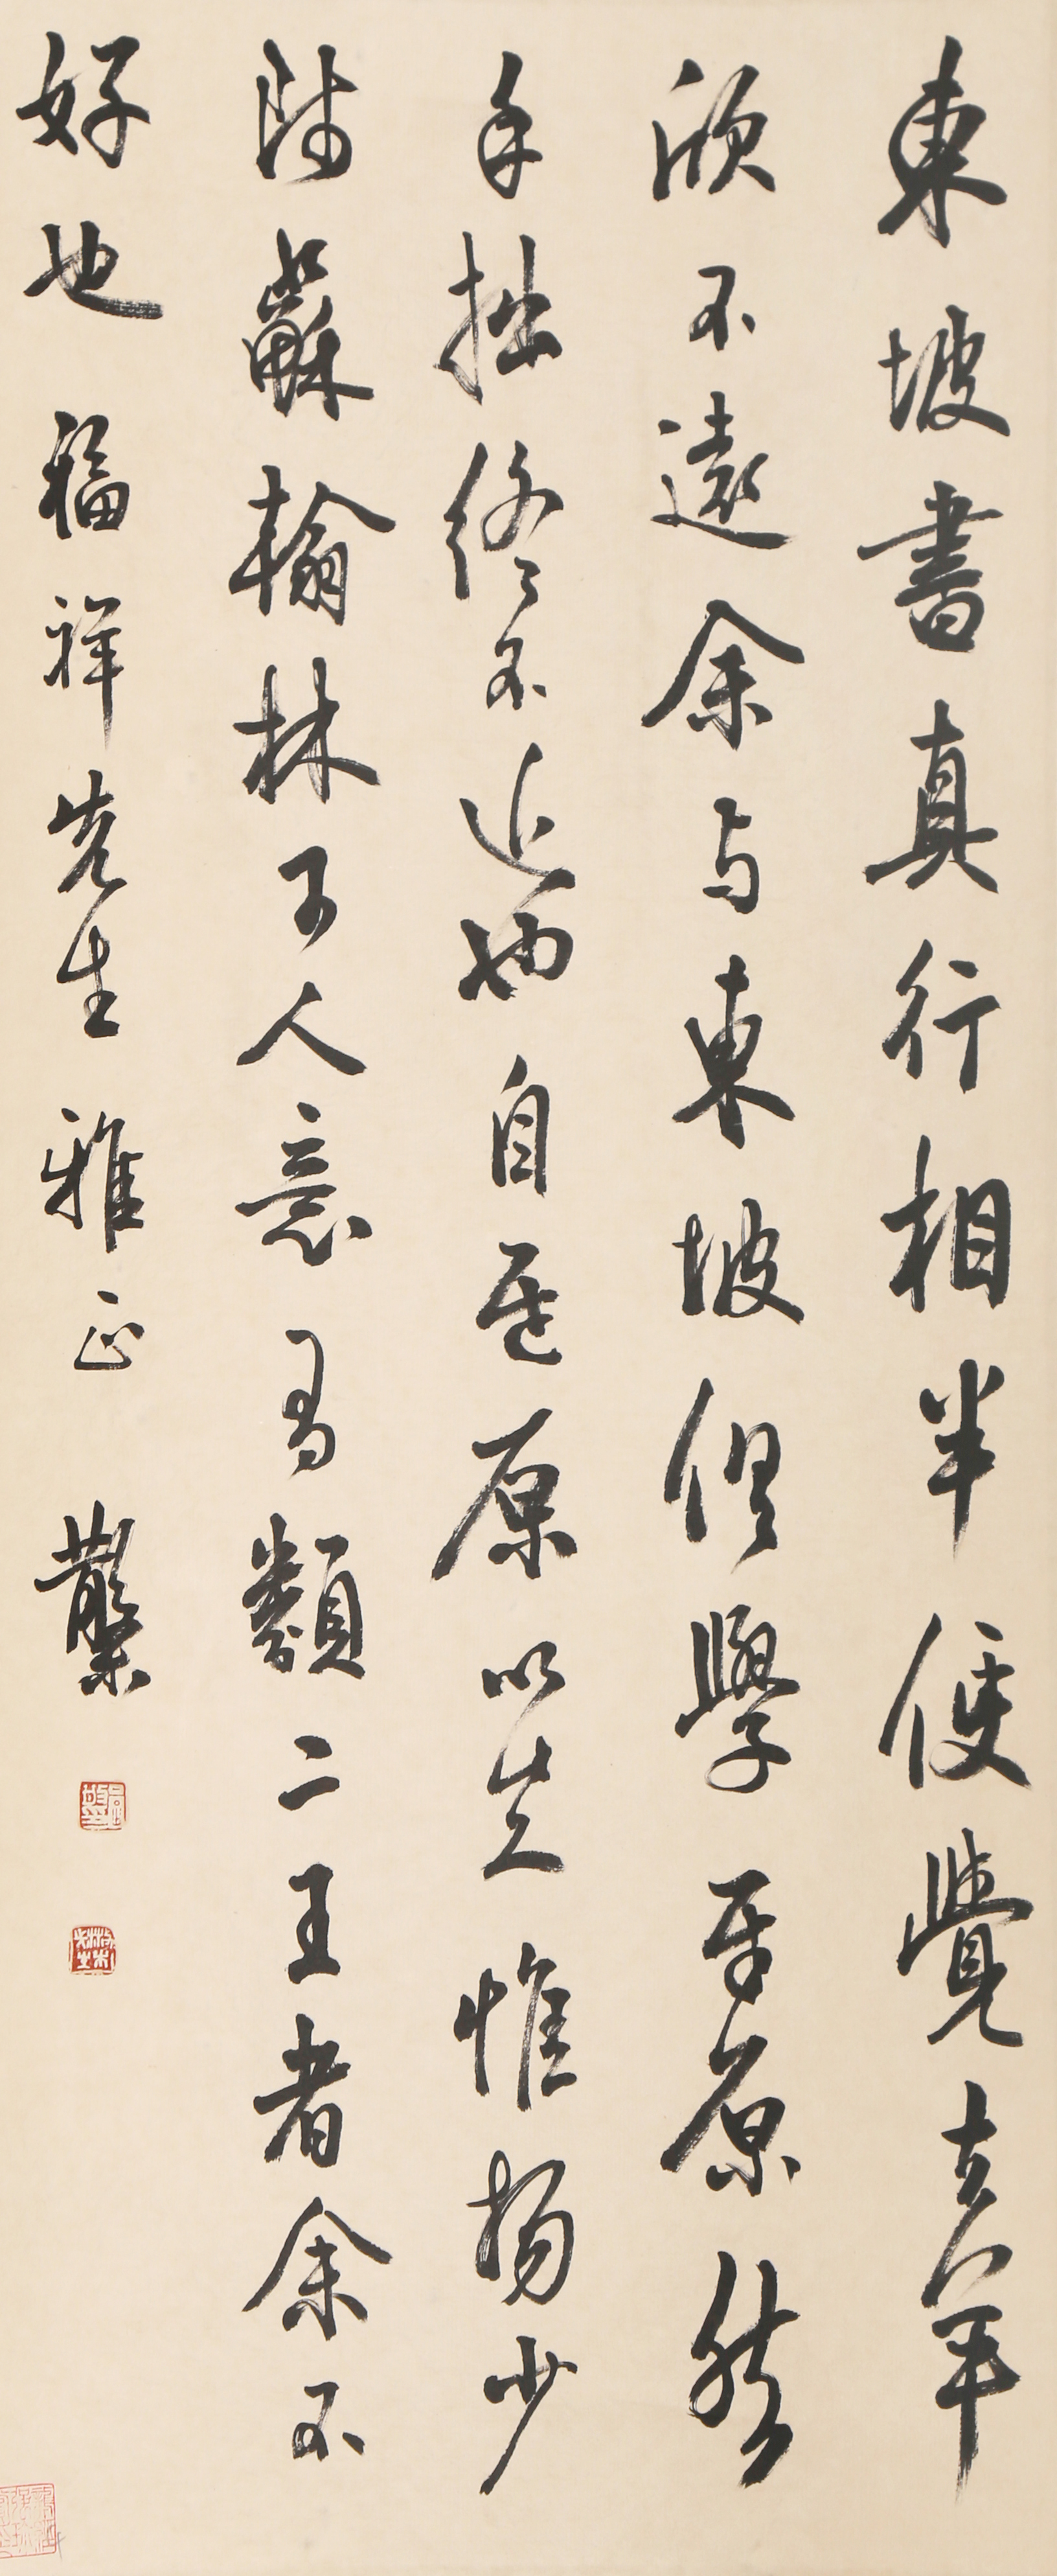 東坡書真行相半便覺去羊
欣不遠余与東坡俱學平原然
手拙終不近也自平原以來惟楊少
師蘇翰林可人意有類二王者余不
好也 福祥先生 雅正